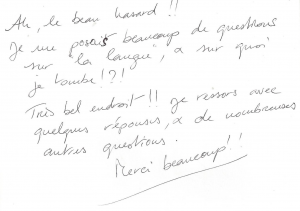 Ah, le beau hasard !!
Je me posais beaucoup de questions
sur "la langue", & sur quoi
je tombe !?!
Très bel endroit !! Je ressors avec
quelques réponses, & de nombreuses
autres questions.
Merci beaucoup !!